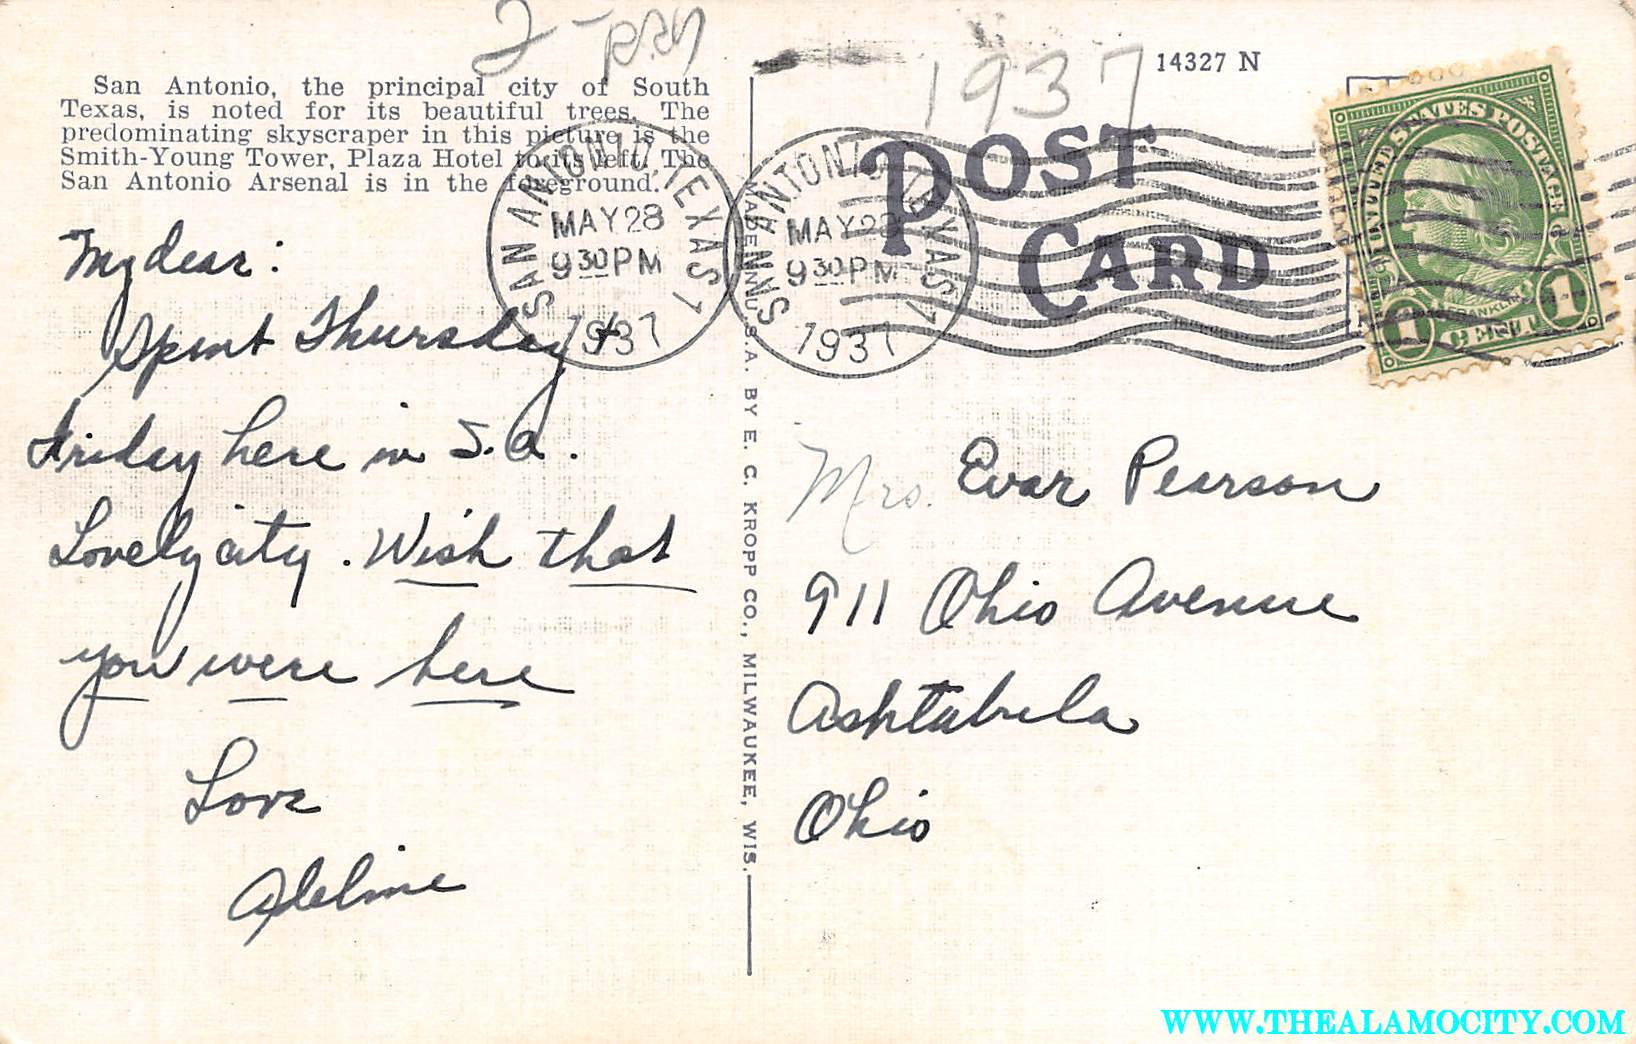 2
1937
14327 N
San Antonio, the principal city of South
Texas, is noted for its beautiful trees. The
predominating skyscraper in this picture is the
Smith-Young Tower, Plaza Hotel to its left. The
San Antonio Arsenal is in the foreground.
SAN ANTONIO, TEXAS 7
MAY 28
9 30 PM
1937
SAN ANTONIO, TEXAS 7
MAY 28
9 30 PM
1937
POST
CARD
UNITED STATES POSTAGE
FRANKLIN
1 CENT 1
My dear:
Spent Thursday +
Friday here in S.A.
Lovely city. Wish that
you were here
Love
Adeline
MADE IN U.S.A. BY E. C. KROPP CO., MILWAUKEE, WIS.
Mrs. Evar Pearson
911 Ohio Avenue
Ashtabula
Ohio
WWW.THEALAMOCITY.COM